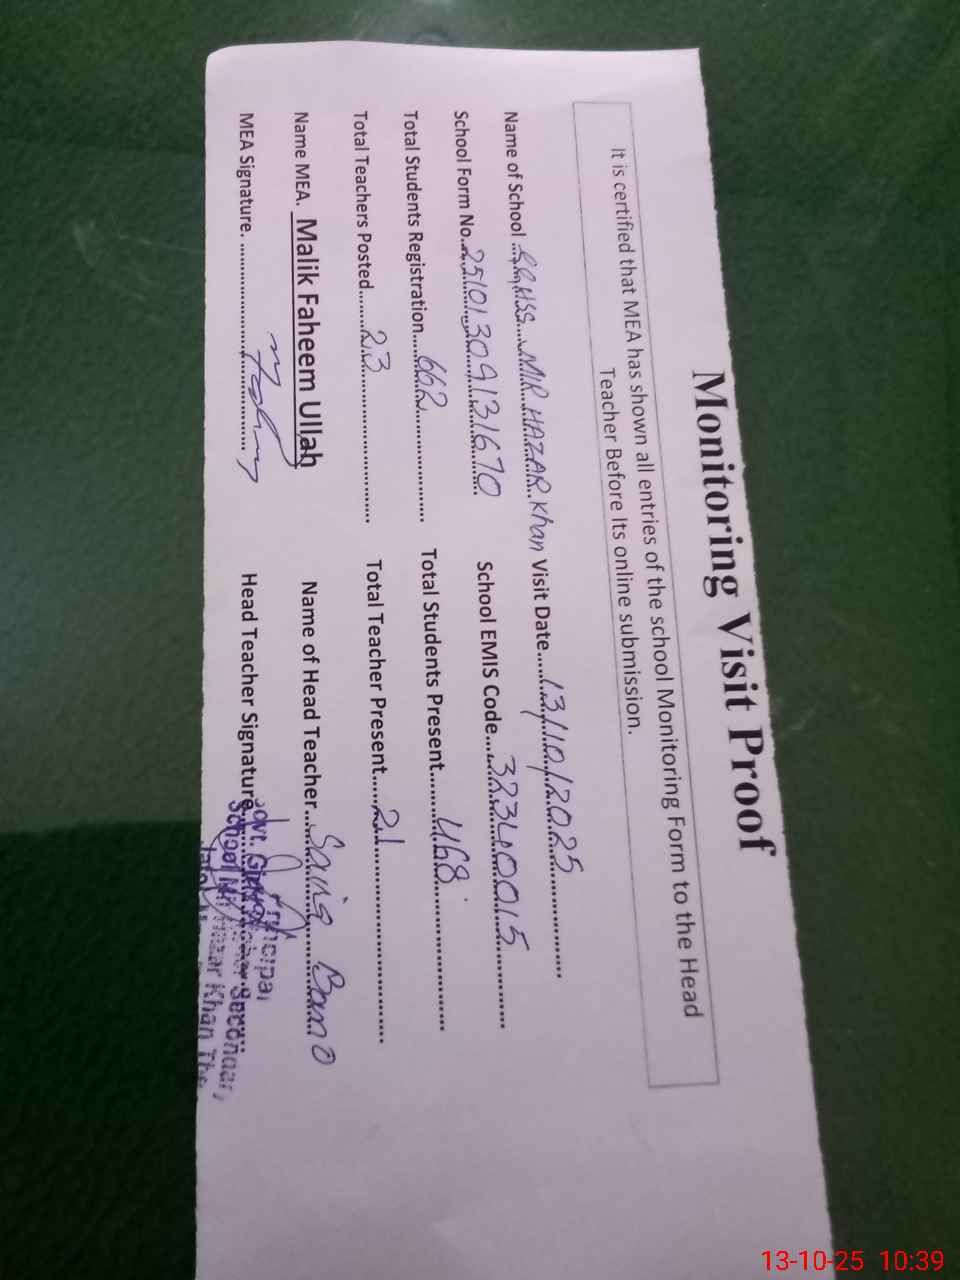 Monitoring Visit Proof
It is certified that MEA has shown all entries of the school Monitoring Form to the Head
Teacher Before Its online submission.
Name of School ..... MIR HAZAR Khan Visit Date.....13/10/2025.....
School Form No..25101309131670 School EMIS Code...32340015.....
Total Students Registration....662..... Total Students Present.....468.....
Total Teachers Posted.....23..... Total Teacher Present.....21.....
Name MEA. Malik Faheem Ullah Name of Head Teacher... Bano
MEA Signature. ..... Head Teacher Signature.....
Principal
Govt. Girls Higher Secondary
School Mir Hazar Khan
13-10-25 10:39